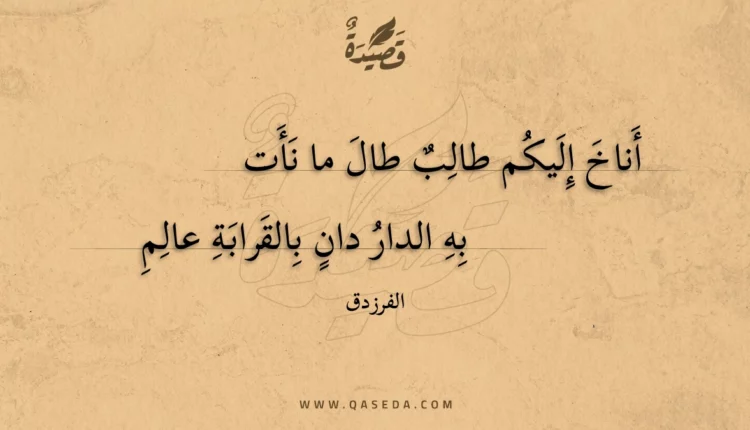 قَصِيدَةٌ
أَناخَ إِلَيكُم طالِبٌ طالَ ما نَأَت
بِهِ الدارُ دانٍ بِالقَرابَةِ عالِمِ
الفرزدق
WWW.QASEDA.COM